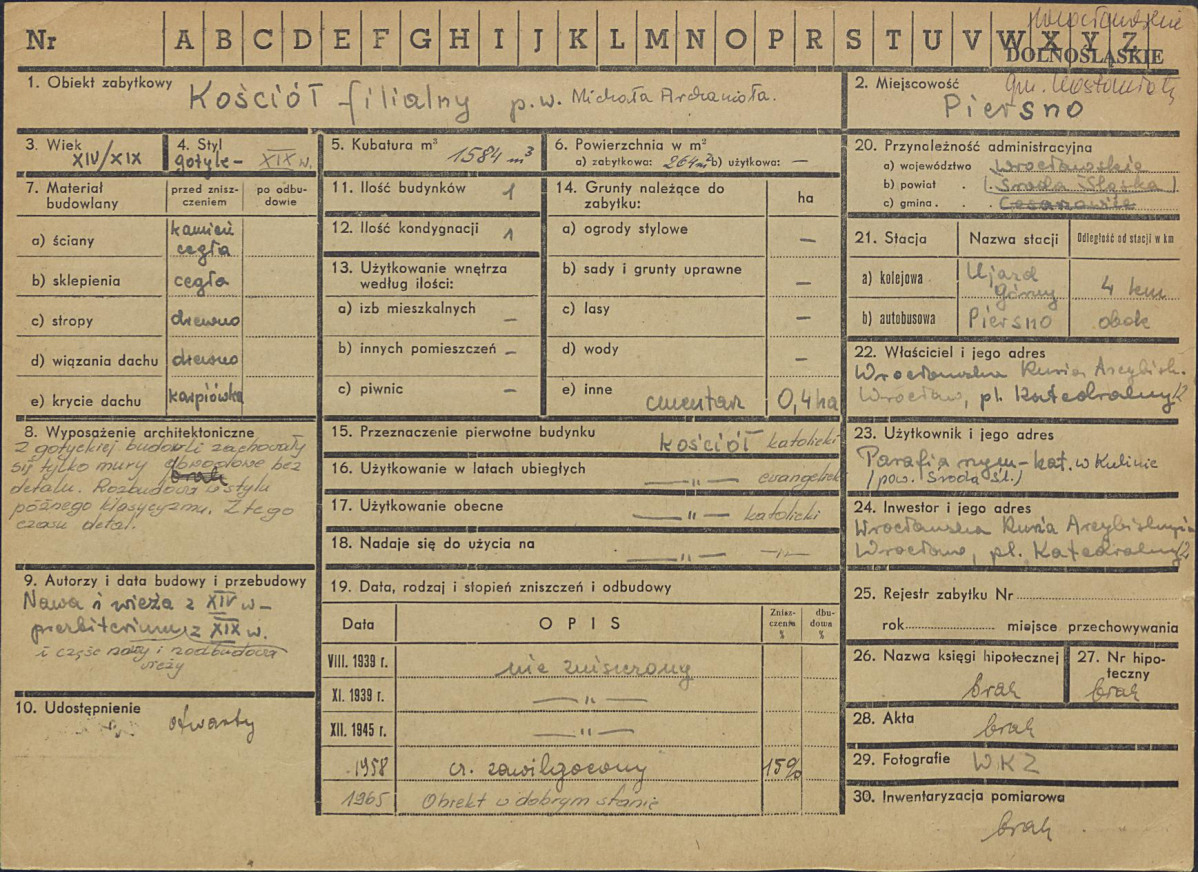 Nr A B C D E F G H I J K L M N O P R S T U V W X Y Z
DOLNOŚLĄSKIE
1. Obiekt zabytkowy
Kościół filialny p.w. Michała Archanioła.
2. Miejscowość
gm. Kostomłoty
Piersno
3. Wiek
XIV/XIX
4. Styl
gotyk - XIX w.
5. Kubatura m³ 1584 m³
6. Powierzchnia w m²
a) zabytkowa: 264 m² b) użytkowa: —
7. Materiał budowlany
przed zniszczeniem
po odbudowie
a) ściany kamień cegła
b) sklepienia cegła
c) stropy drewno
d) wiązania dachu drewno
e) krycie dachu karpiówka
8. Wyposażenie architektoniczne
Z gotyckiej budowli zachowały
się tylko mury obwodowe bez
brak
detalu. Rozbudowa w stylu
późnego klasycyzmu. Z tego
czasu detal.
9. Autorzy i data budowy i przebudowy
Nawa i wieża z XIV w -
prezbiterium z XIX w.
i część nawy i nadbudowa
wieży
10. Udostępnienie
otwarty
11. Ilość budynków 1
12. Ilość kondygnacji 1
13. Użytkowanie wnętrza
według ilości:
a) izb mieszkalnych —
b) innych pomieszczeń —
c) piwnic —
14. Grunty należące do
zabytku:
ha
a) ogrody stylowe —
b) sady i grunty uprawne —
c) lasy —
d) wody —
e) inne
cmentarz 0,4 ha
15. Przeznaczenie pierwotne budynku kościół katolicki
16. Użytkowanie w latach ubiegłych — " —
17. Użytkowanie obecne — " — katolicki
18. Nadaje się do użycia na — " — — " —
19. Data, rodzaj i stopień zniszczeń i odbudowy
Data OPIS Znisz-czenia % dbu-dowa %
VIII. 1939 r. nie zniszczony
XI. 1939 r. — " —
XII. 1945 r. — " —
1958 cz. zawilgocony 15%
1965 Obiekt w dobrym stanie
20. Przynależność administracyjna
a) województwo Wrocławskie
b) powiat (Środa Śląska)
c) gmina
21. Stacja Nazwa stacji Odległość od stacji w km
a) kolejowa Ujazd Górny 4 km
b) autobusowa Piersno obok
22. Właściciel i jego adres
Wrocławska Kuria Arcybisk.
Wrocław, pl. Katedralny
23. Użytkownik i jego adres
Parafia rzym-kat. w Kulinie
(pow. Środa Śl.)
24. Inwestor i jego adres
Wrocławska Kuria Arcybiskupia
Wrocław, pl. Katedralny
25. Rejestr zabytku Nr
rok miejsce przechowywania
26. Nazwa księgi hipotecznej
brak
27. Nr hipo-
teczny
brak
28. Akta
brak
29. Fotografie WKZ
30. Inwentaryzacja pomiarowa
brak